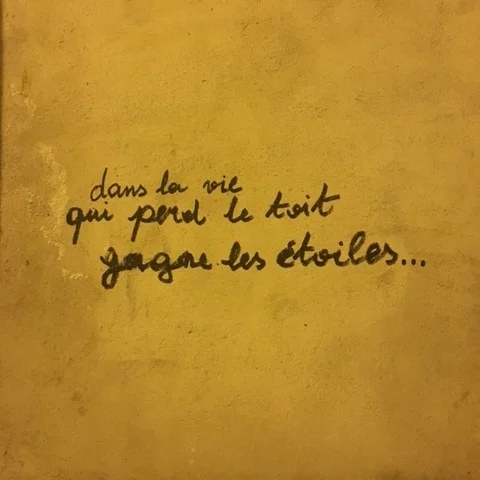 dans la vie
qui perd le toit
gagne les étoiles...